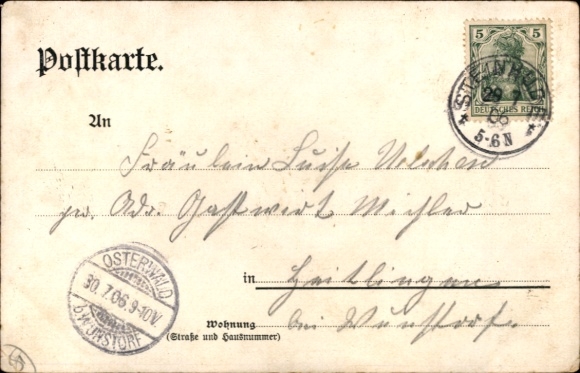 Postkarte.
5 5
DEUTSCHES REICH
29 7
06
5-6 N
An
Fräulein Luise
pr. Adr. Gastwert Michler
OSTERWALD
30.7.06.9-10V.
b/WUNSTORF
in Heitlingen
Wohnung
(Straße und Hausnummer)
bei Wunstorf.